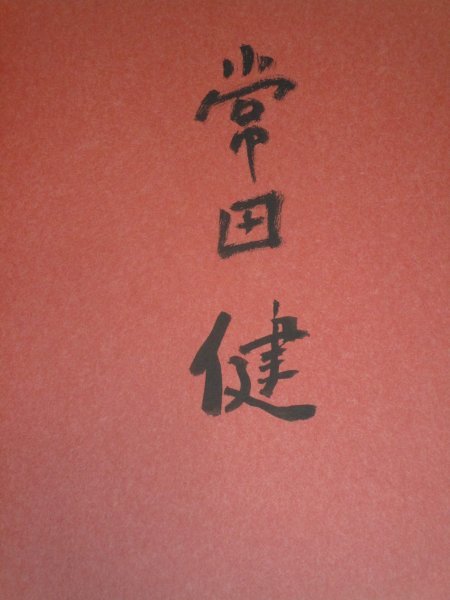 常田健